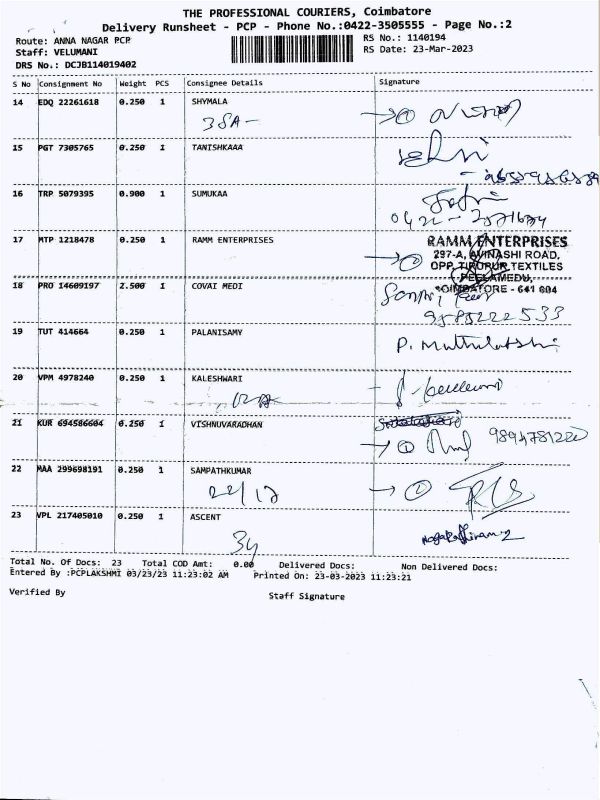 THE PROFESSIONAL COURIERS, Coimbatore
Delivery Runsheet - PCP - Phone No.:0422-3505555 - Page No.:2
Route: ANNA NAGAR PCP RS No.: 1140194
Staff: VELUMANI RS Date: 23-Mar-2023
DRS No.: DCJB114019402
S No Consignment No Weight PCS Consignee Details Signature
14 EDQ 22261618 0.250 1 SHYMALA
38A -
15 PGT 7305765 0.250 1 TANISHKAAA
16 TRP 5079395 0.900 1 SUMUKAA
17 MTP 1218478 0.250 1 RAMM ENTERPRISES RAMM ENTERPRISES
297-A, AVINASHI ROAD,
OPP. TIRUPUR TEXTILES
PEELAMEDU,
COIMBATORE - 641 004
18 PRO 14609197 2.500 1 COVAI MEDI
19 TUT 414664 0.250 1 PALANISAMY
P. Muthulakshmi
20 VPM 4978240 0.250 1 KALESHWARI
21 KUR 694586604 0.250 1 VISHNUVARADHAN
9894781220
22 MAA 299698191 0.250 1 SAMPATHKUMAR
22/12
23 VPL 217405010 0.250 1 ASCENT
34
Total No. Of Docs: 23 Total COD Amt: 0.00 Delivered Docs: Non Delivered Docs:
Entered By :PCPLAKSHMI 03/23/23 11:23:02 AM Printed On: 23-03-2023 11:23:21
Verified By Staff Signature